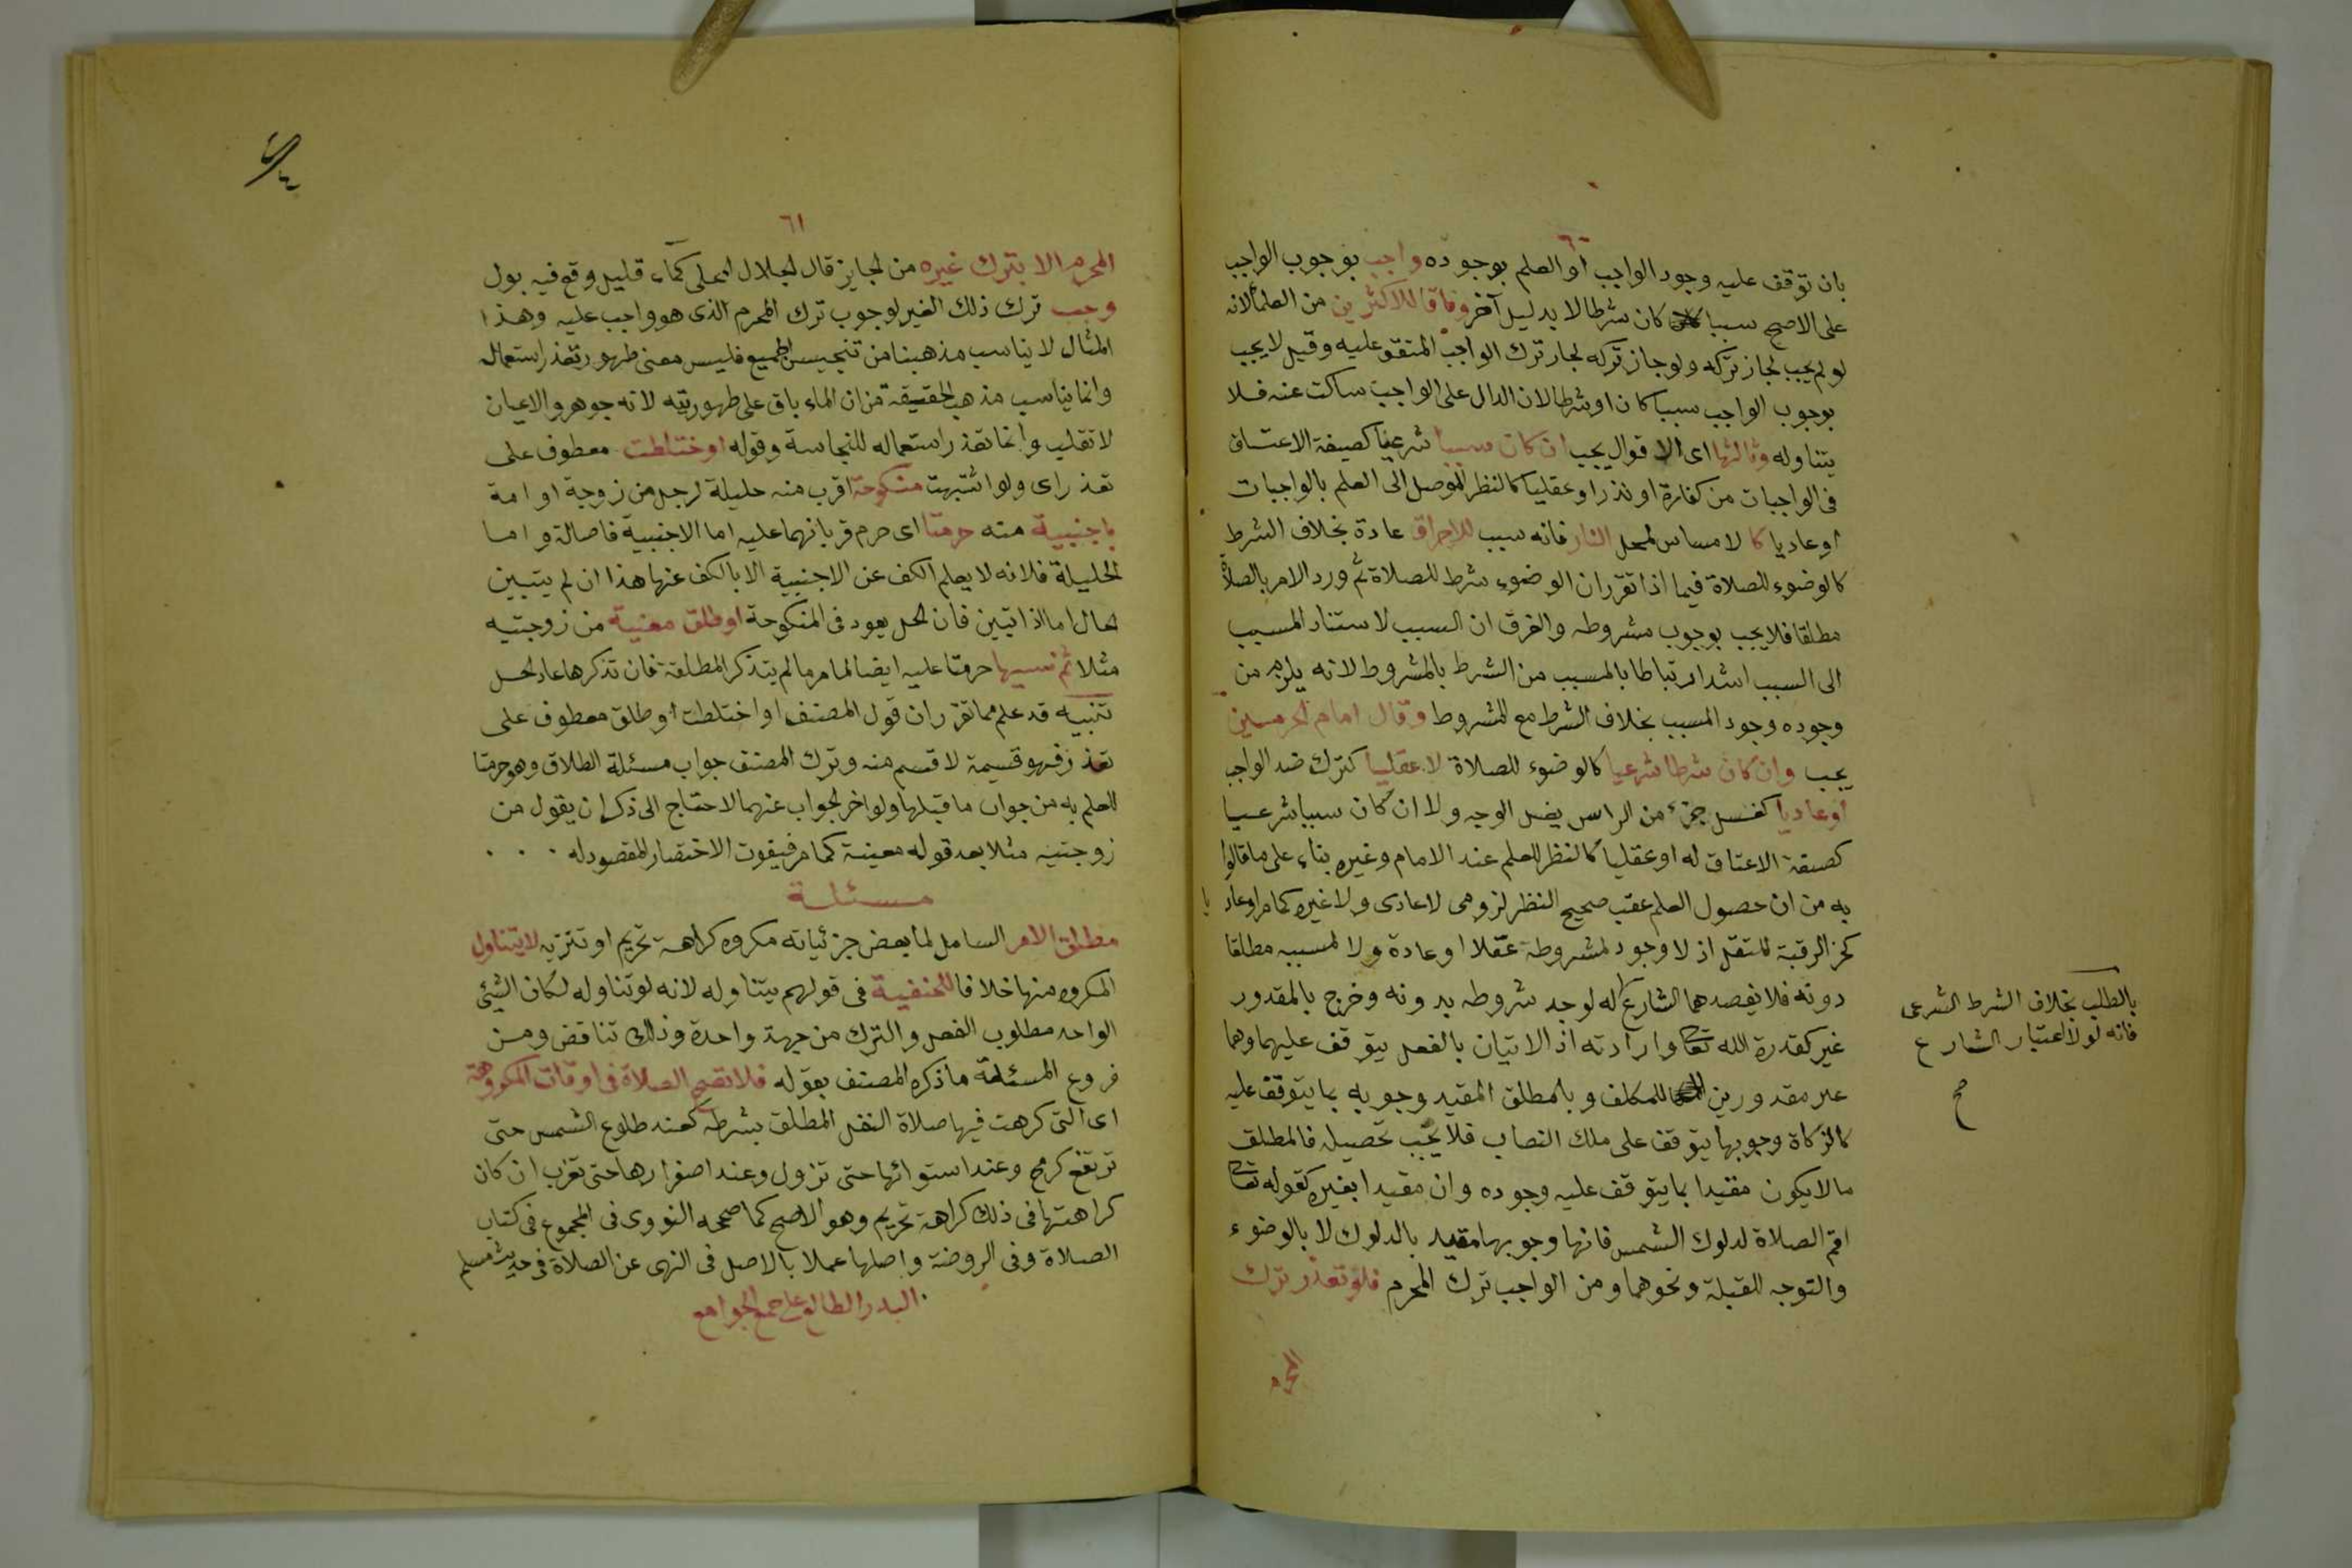 ٦٠
بان توقف عليه وجود الواجب او العلم بوجوده واجب بوجوب الواجب
على الاصح سببا كان شرطا لا بدليل آخر وفاقا للاكثرين من العلماء لانه
لو لم يجب لجاز تركه ولو جاز تركه لجاز ترك الواجب المتفق عليه وقيل لا يجب
بوجوب الواجب سببا كان او شرطا لان الدال على الواجب ساكت عنه فلا
يتناوله وثالثها اى الاقوال يجب ان كان سببا شرعيا كصيغة الاعتاق
فى الواجبات من كفارة او نذر او عقليا كالنظر الموصل الى العلم بالواجبات
او عاديا كا لامساس لمحل النار فانه سبب للاحراق عادة بخلاف الشرط
كالوضوء للصلاة فيما اذا تقرر ان الوضوء شرط للصلاة ثم ورد الامر بالصلاة
مطلقا فلا يجب بوجوب مشروطه والفرق ان السبب لاستناد المسبب
الى السبب اشد ارتباطا بالمسبب من الشرط بالمشروط لانه يلزم من
وجوده وجود المسبب بخلاف الشرط مع المشروط وقال امام الحرمين
يجب وان كان شرطا شرعيا كالوضوء للصلاة لا عقليا كترك ضد الواجب
او عاديا كغسل جزء من الراس بغسل الوجه ولا ان كان سببا شرعيا
كصيغة الاعتاق له او عقليا كالنظر للعلم عند الامام وغيره بناء على ما قالوا
به من ان حصول العلم عقب صحيح النظر لزومى لا عادى ولا غيره كما مر او عاديا
كحز الرقبة للقتل اذ لا وجود لمشروطه عقلا او عادة ولا لمسببه مطلقا
دونه فلا يقصدهما الشارع له لوجد شروطه بدونه وخرج بالمقدور
غير كقدرة الله تعالى وارادته اذ الاتيان بالفعل يتوقف عليهما وهما
غير مقدورين للمكلف وبالمطلق المقيد وجوبه بما يتوقف عليه
كالزكاة وجوبها يتوقف على ملك النصاب فلا يجب تحصيله فالمطلق
ما لا يكون مقيدا بما يتوقف عليه وجوده وان مقيدا بغيره كقوله تعالى
اقم الصلاة لدلوك الشمس فانها وجوبها مقيد بالدلوك لا بالوضوء
والتوجه للقبلة ونحوهما ومن الواجب ترك المحرم فلو تعذر ترك
المحرم
بالطلب بخلاف الشرط الشرعى
فانه لولا اعتبار الشارع
صح
٦١
المحرم الا بترك غيره من الجايز قال الجلال المحلى كماء قليل وقع فيه بول
وجب ترك ذلك الغير لوجوب ترك المحرم الذى هو واجب عليه وهذا
المثال لا يناسب مذهبنا من تنجيس الجميع فليس معنى طهور يتعذر استعماله
وانما يناسب مذهب الحقيقة من ان الماء باق على طهوريته لانه جوهر والاعيان
لا تقلب وانما تعذر استعماله للنجاسة وقوله او اختلطت معطوف على
تعذر اى ولو اشتبهت منكوحة اقرب منه حليلة لرجل من زوجة او امة
باجنبية منه حرمتا اى حرم قربانهما عليه اما الاجنبية فاصالة واما
الحليلة فلانه لا يعلم الكف عن الاجنبية الا بالكف عنها هذا ان لم يتبين
الحال اما اذا تبين فان الحل يعود فى المنكوحة او طلق معينة من زوجتيه
مثلا ثم نسيها حرمتا عليه ايضا لما مر ما لم يتذكر المطلقة فان تذكرها عاد الحل
تنبيه قد علم مما تقرر ان قول المصنف او اختلطت او طلق معطوف على
تعذر فهو قسيمة لا قسم منه وترك المصنف جواب مسئلة الطلاق وهو حرمتا
للعلم به من جواب ما قبلها ولو اخر الجواب عنهما لاحتاج الى ذكر ان يقول من
زوجتيه مثلا بعد قوله معينة كما مر فيفوت الاختصار المقصود له
مسئلة
مطلق الامر الشامل لما بعض جزئياته مكروه كراهة تحريم او تنزيه لا يتناول
المكروه منها خلافا للحنفية فى قولهم يتناوله لانه لو تناوله لكان الشيئ
الواحد مطلوب الفعل والترك من جهة واحدة وذلك تناقض ومن
فروع المسئلة ما ذكره المصنف بقوله فلا تصح الصلاة فى اوقات المكروهة
اى التى كرهت فيها صلاة النفل المطلق بشرطه كعند طلوع الشمس حتى
ترتفع كرمح وعند استوائها حتى تزول وعند اصفرارها حتى تغرب ان كان
كراهتها فى ذلك كراهة تحريم وهو الاصح كما صححه النووى فى المجموع فى كتاب
الصلاة وفى الروضة واصلها عملا بالاصل فى النهى عن الصلاة فى حديث مسلم
البدر الطالع على جمع الجوامع